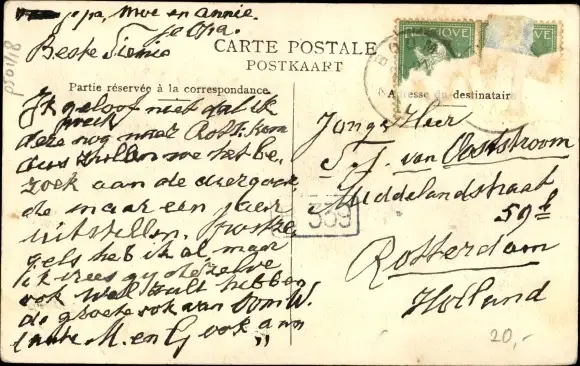 opa, moe en annie.
je Opa.
Beste Tienie
CARTE POSTALE
POSTKAART
Partie réservée à la correspondance.
Adresse du destinataire
BELGIQUE
Ik geloof niet dat ik
deze week nog naar Rott. kom
dus zullen we het be-
zoek aan de diergaar-
de maar een jaar
uitstellen. Postze-
gels heb ik al, maar
ik vrees gij dezelve
ook wel zult hebben
de groete ook van Oom W.
tante M. en G ook ann
Jonge Heer
S. J. van Ooststroom
Middelandstraat
59
Rotterdam
Holland
339
20,-